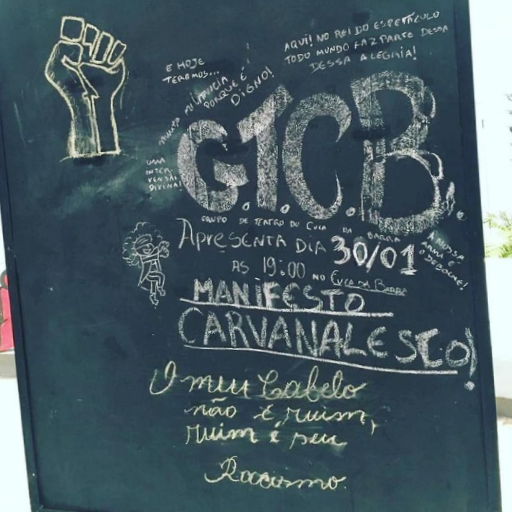 E HOJE
TEREMOS...
AQUI! NO REI DO ESPETÁCULO
TODO MUNDO FAZ PARTE DESSA
DESSA ALEGRIA!
PORQUE É
DIGNO!
UMA
INTER
VENSÃO
DIVINA!
G.T.C.B.
GRUPO DE TEATRO DO CUCA DA BARRA
APRESENTA DIA 30/01
AS 19:00 NO CUCA DA BARRA
MANIFESTO
CARVANALESCO!
O meu Cabelo
não é ruim,
ruim é seu
Racismo.